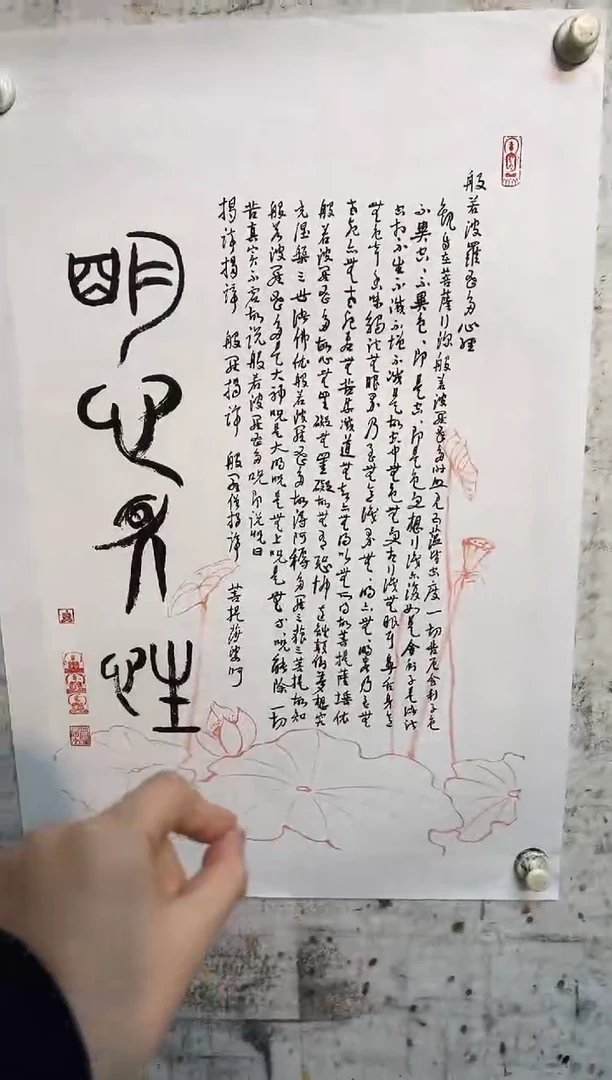 般若波羅蜜多心經
觀自在菩薩行深般若波羅蜜多時照見五蘊皆空度一切苦厄舍利子色
不異空空不異色色即是空空即是色受想行識亦復如是舍利子是諸法
空相不生不滅不垢不淨不增不減是故空中無色無受想行識無眼耳鼻舌身意
無色聲香味觸法無眼界乃至無意識界無無明亦無無明盡乃至無
老死亦無老死盡無苦集滅道無智亦無得以無所得故菩提薩埵依
般若波羅蜜多故心無罣礙無罣礙故無有恐怖遠離顛倒夢想究
竟涅槃三世諸佛依般若波羅蜜多故得阿耨多羅三藐三菩提故知
般若波羅蜜多是大神呪是大明呪是無上呪是無等等呪能除一切
苦真實不虛故說般若波羅蜜多呪即說呪曰
揭諦揭諦 般羅揭諦 般羅僧揭諦 菩提薩婆訶
明心見性